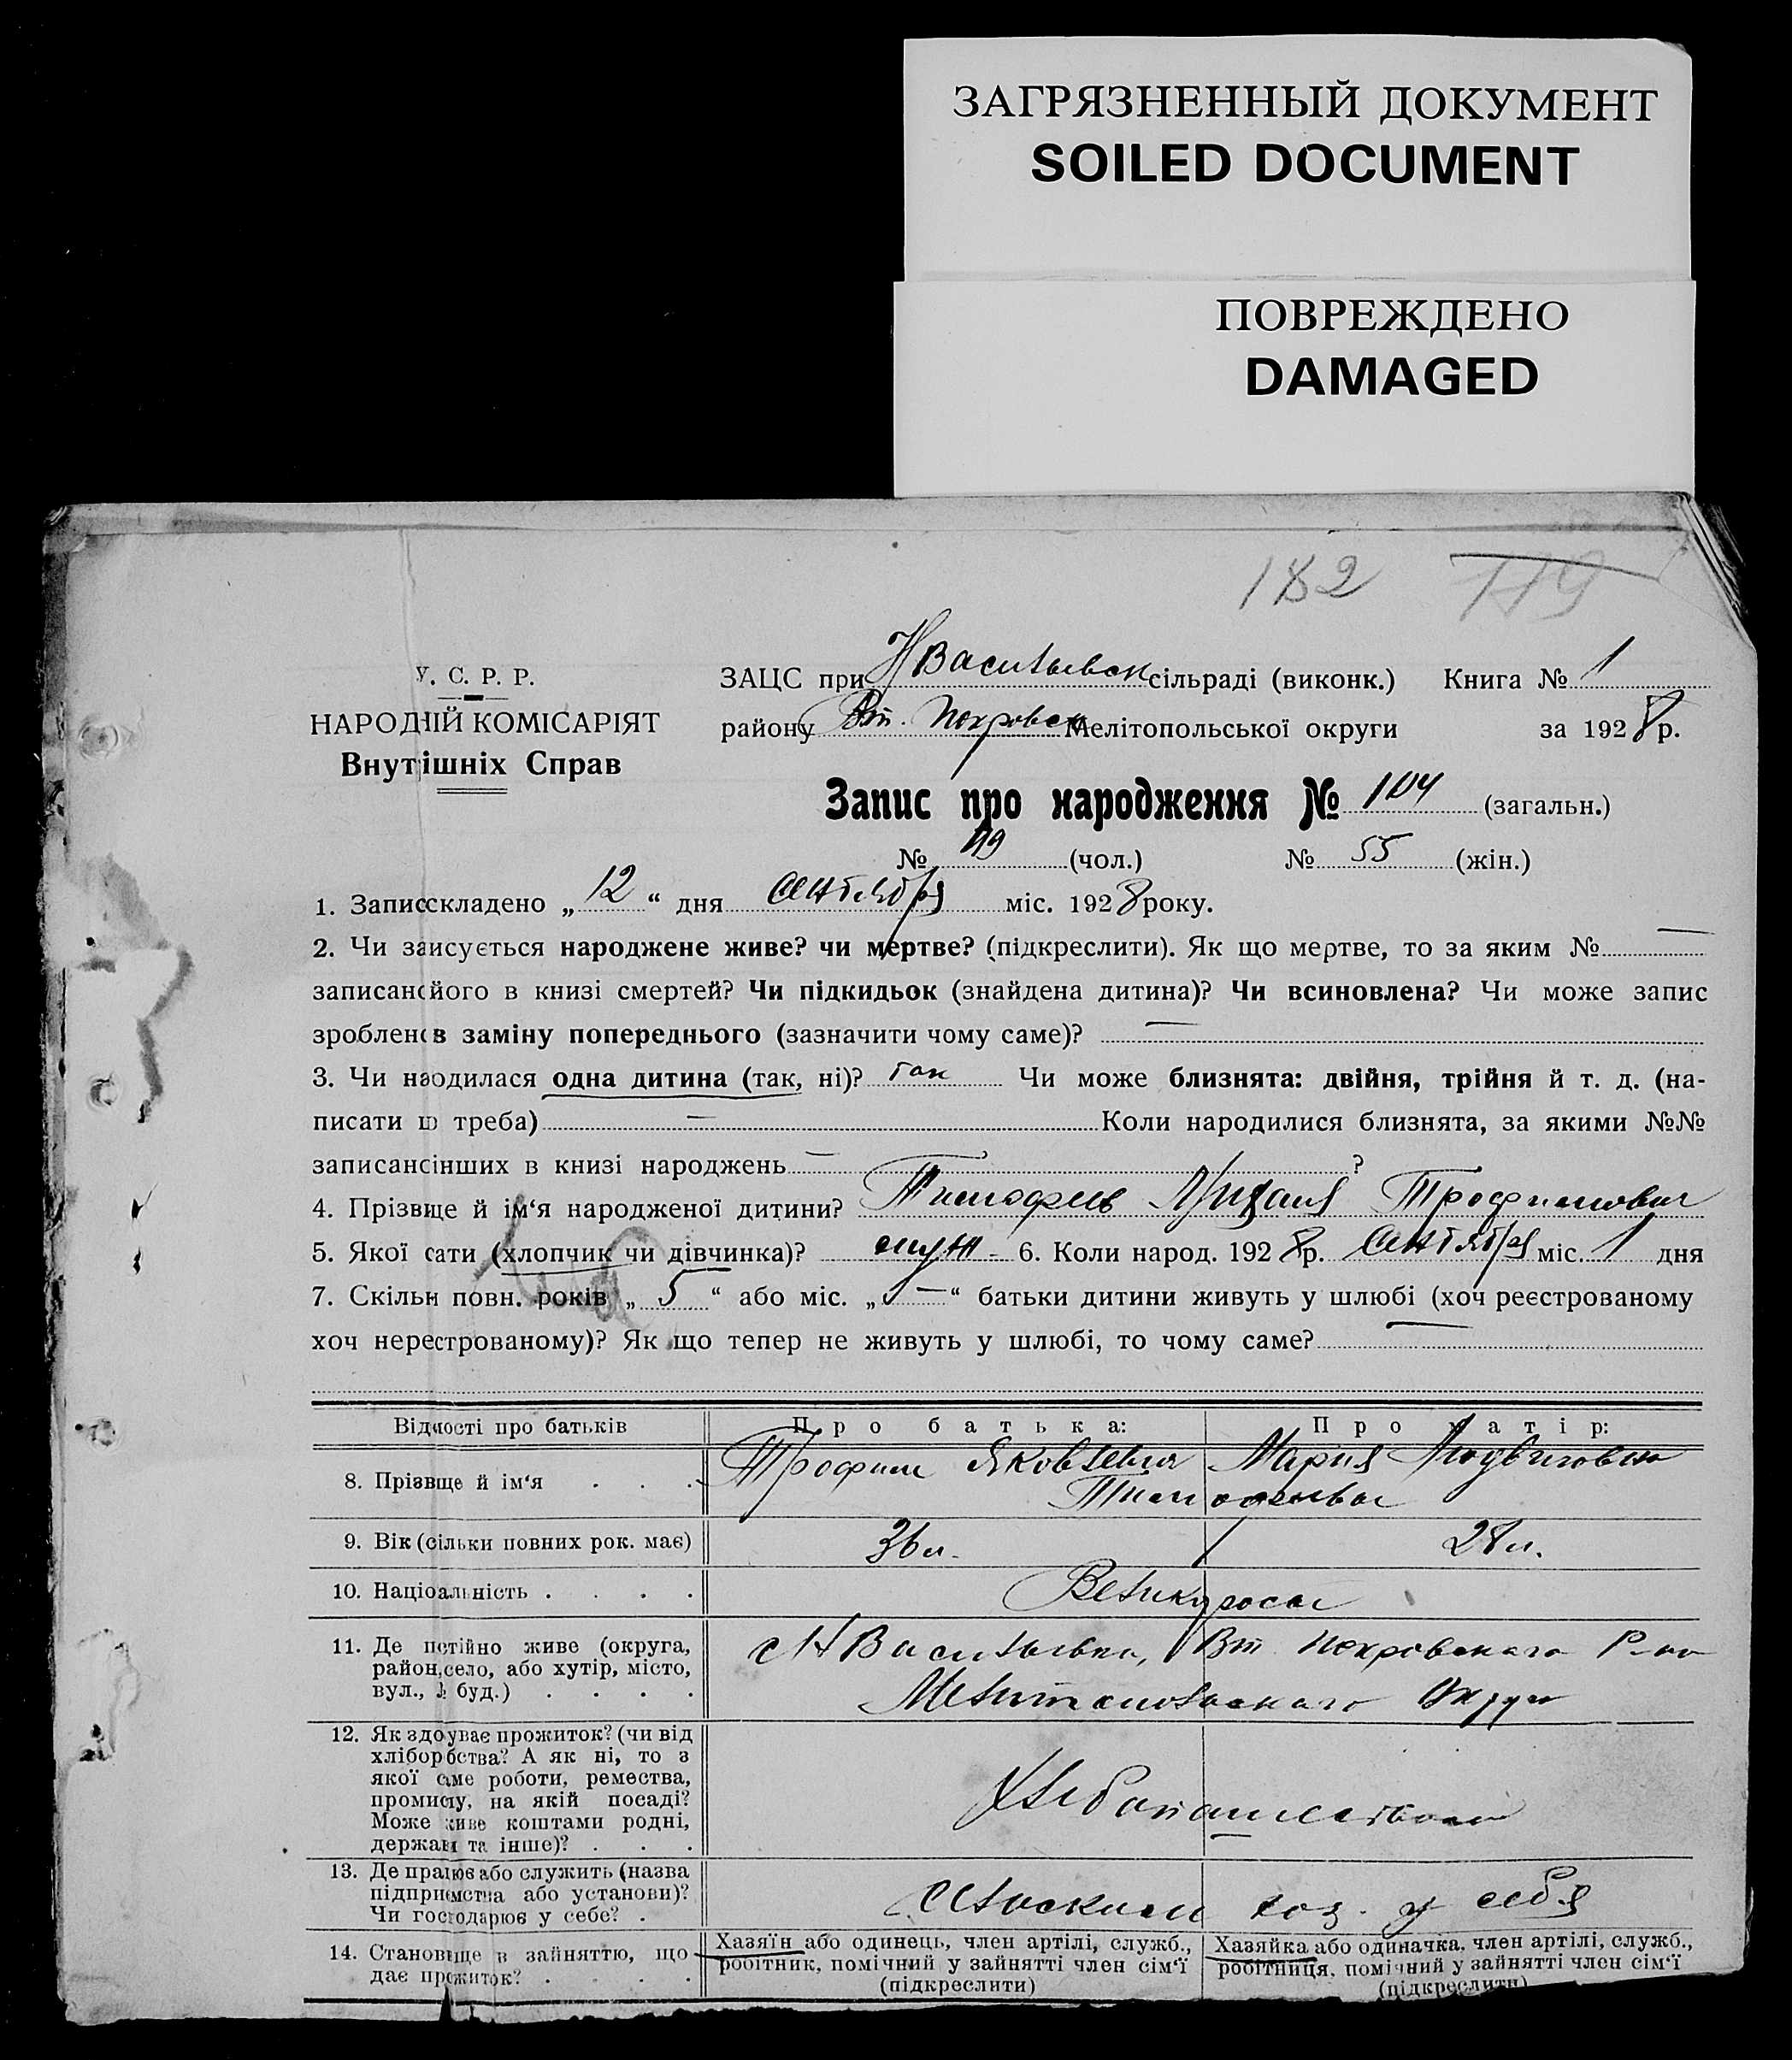 ЗАГРЯЗНЕННЫЙ ДОКУМЕНТ
SOILED DOCUMENT
ПОВРЕЖДЕНО
DAMAGED
182 119
У. С. Р. Р.
НАРОДНІЙ КОМІСАРІЯТ
Внутішніх Справ
ЗАЦС при Н Васильевск сільраді (виконк.) Книга № 1
району Вт. Покровск Мелітопольської округи за 1928 р.
Запис про народження № 104 (загальн.)
№ 49 (чол.) № 55 (жін.)
1. Запис складено „ 12 “ дня Сентября міс. 1928 року.
2. Чи заисується народжене живе? чи мертве? (підкреслити). Як що мертве, то за яким № —
записано його в книзі смертей? Чи підкидьок (знайдена дитина)? Чи всиновлена? Чи може запис
зроблено в заміну попереднього (зазначити чому саме)? —
3. Чи наодилася одна дитина (так, ні)? так Чи може близнята: двійня, трійня й т. д. (на-
писати що треба) — Коли народилися близнята, за якими №№
записано інших в книзі народжень — ?
4. Прізвще й ім‘я народженої дитини? Тимофеев Трофимович
5. Якої сати (хлопчик чи дівчинка)? муж - 6. Коли народ. 1928 р. Сентября міс. 1 дня
7. Скільн повн. років „ 5 “ або міс. „ — “ батьки дитини живуть у шлюбі (хоч реєстрованому
хоч нерестрованому)? Як що тепер не живуть у шлюбі, то чому саме?
Відності про батьків Про батька: Про матір:
8. Прізвще й ім‘я . . . Трофим Яковлевич Мария Людвиговна
Тимофеевы
9. Вік (сільки повних рок. має) 36 л. 28 л.
10. Націоальність . . . . Великоросы
11. Де потійно живе (округа, с Н Васильевка, Вт. Покровского Р-на
район, село, або хутір, місто,
вул., № буд.) . . . . Мелитопольского Округа
12. Як здоуває прожиток? (чи від
хліборбства? А як ні, то з
якої саме роботи, ремества,
промислу, на якій посаді? Хлебопашеством
Може живе коштами родні,
держави та інше)? . . .
13. Де працює або служить (назва
підприємства або установи)? Сельским хоз. у себя
Чи господарює у себе? .
14. Становище в зайняттю, що Хазяїн або одинець, член артілі, служб., Хазяйка або одиначка, член артілі, служб.,
дає прожиток? . . . . робітник, помічний у зайнятті член сім‘ї робітниця, помічний у зайнятті член сім‘ї
(підкреслити) (підкреслити)